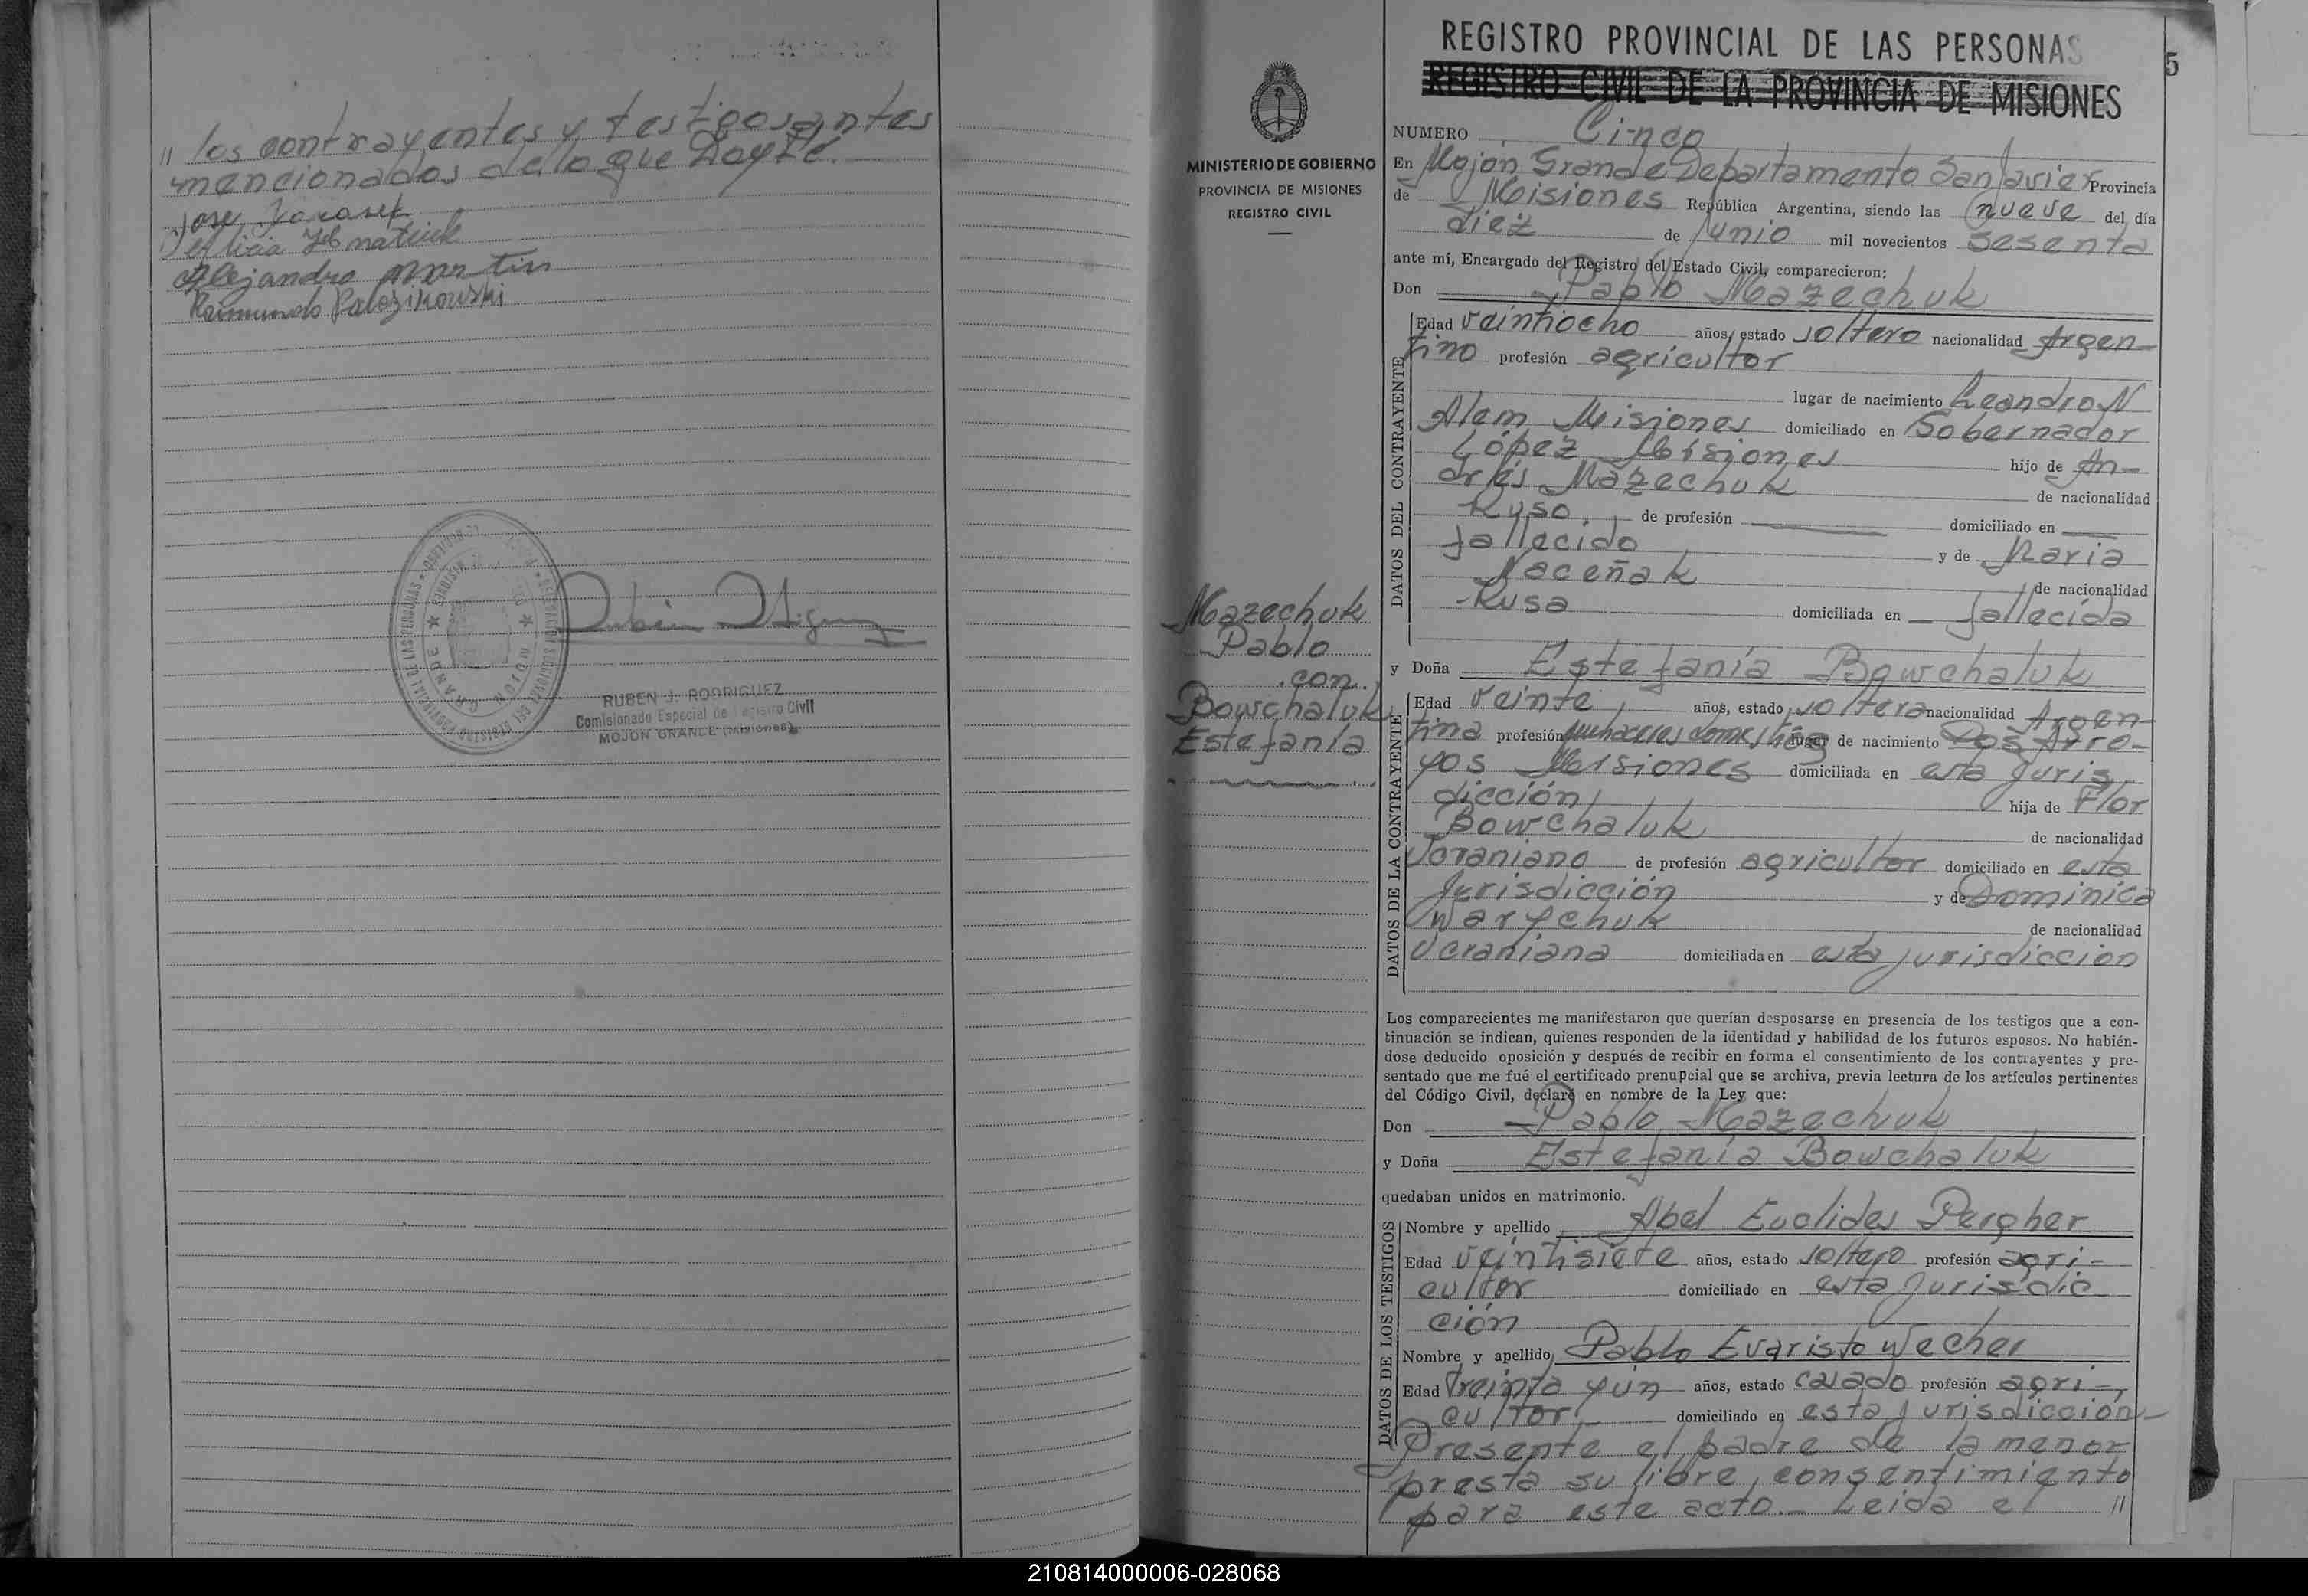 " los contrayentes y testigos antes
mencionados de lo que Doy Fé.
José
Alejandro Martin
Raimundo
RUBEN J. RODRIGUEZ
Comisionado Especial de Registro Civil
MOJON GRANDE (Misiones)
MINISTERIO DE GOBIERNO
PROVINCIA DE MISIONES
REGISTRO CIVIL
Mazechuk
Pablo
con
Bowchaluk
Estefanía
REGISTRO PROVINCIAL DE LAS PERSONAS
5
REGISTRO CIVIL DE LA PROVINCIA DE MISIONES
NUMERO Cinco
En Mojón Grande Departamento San Javier Provincia
de Misiones República Argentina, siendo las nueve del día
diez de Junio mil novecientos sesenta
ante mí, Encargado del Registro del Estado Civil, comparecieron:
Don Pablo Mazechuk
DATOS DEL CONTRAYENTE
Edad veintiocho años, estado soltero nacionalidad Argen-
tino profesión agricultor
lugar de nacimiento Leandro N
Alem Misiones domiciliado en Gobernador
López Misiones hijo de An-
drés Mazechuk de nacionalidad
Ruso de profesión domiciliado en
fallecido y de María
Naceñak de nacionalidad
Rusa domiciliada en fallecida
y Doña Estefanía Bowchaluk
DATOS DE LA CONTRAYENTE
Edad veinte años, estado soltera nacionalidad Argen-
tina profesión quehaceres domésticos lugar de nacimiento Dos Arro-
yos Misiones domiciliada en esta juris-
dicción hija de Flor
Bowchaluk de nacionalidad
Ucraniano de profesión agricultor domiciliado en esta
Jurisdicción y de Dominica
Warychuk de nacionalidad
Ucraniana domiciliada en esta jurisdicción
Los comparecientes me manifestaron que querían desposarse en presencia de los testigos que a con-
tinuación se indican, quienes responden de la identidad y habilidad de los futuros esposos. No habién-
dose deducido oposición y después de recibir en forma el consentimiento de los contrayentes y pre-
sentado que me fué el certificado prenupcial que se archiva, previa lectura de los artículos pertinentes
del Código Civil, declaré en nombre de la Ley que:
Don Pablo Mazechuk
y Doña Estefanía Bowchaluk
quedaban unidos en matrimonio.
DATOS DE LOS TESTIGOS
Nombre y apellido Abel Euclides Pergher
Edad veintisiete años, estado soltero profesión agri-
cultor domiciliado en esta Jurisdic
ción
Nombre y apellido Pablo Evaristo Wecher
Edad Treinta y un años, estado casado profesión agri-
cultor domiciliado en esta jurisdicción
Presente el padre de la menor
presta su libre consentimiento
para este acto.- Leida el "
210814000006-028068